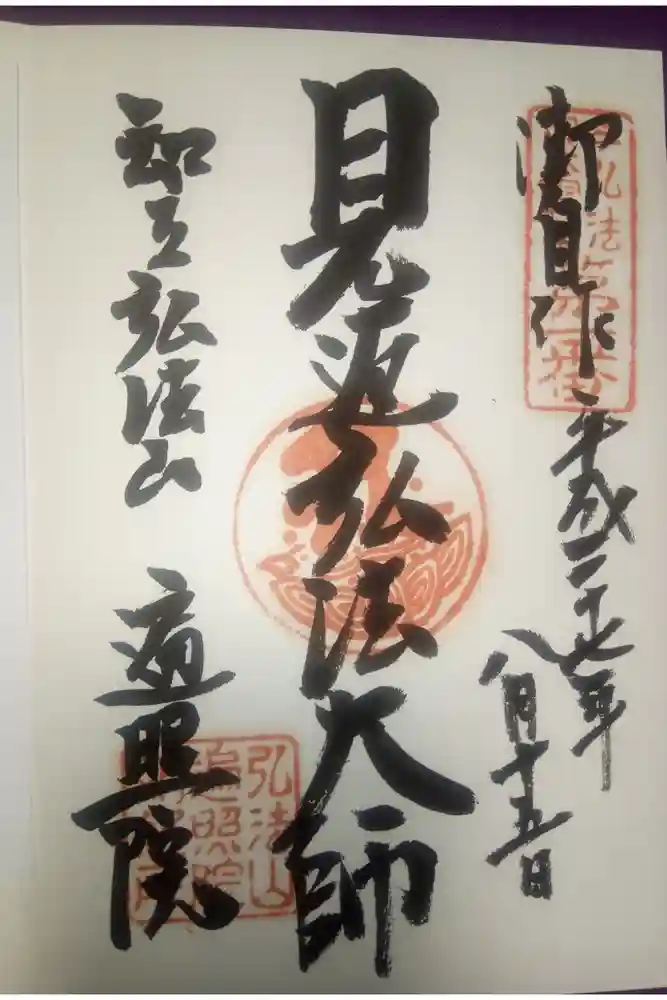 御自作
平成二十七年
八月十五日
見返弘法大師
知立弘法山 遍照院
弘法
第一番
弘法山
遍照院